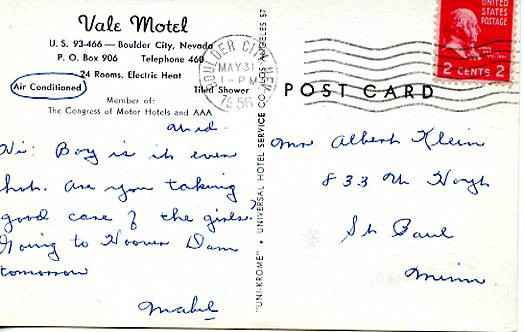 Vale Motel
U. S. 93-466 — Boulder City, Nevada
P. O. Box 906 Telephone 460
24 Rooms, Electric Heat
Air Conditioned Tiled Shower
Member of:
The Congress of Motor Hotels and AAA
Wed.
Hi: Boy is it ever
hot. Are you taking
good care of the girls?
Going to Hoover Dam
tomorrow
Mabel
BOULDER CITY, NEV.
MAY 31
1 - PM
1956
"UNI-KROME" • UNIVERSAL HOTEL SERVICE CO. LOS ANGELES 57
UNITED
STATES
POSTAGE
2 CENTS 2
POST CARD
Mr Albert Klein
833 No
St Paul
Minn